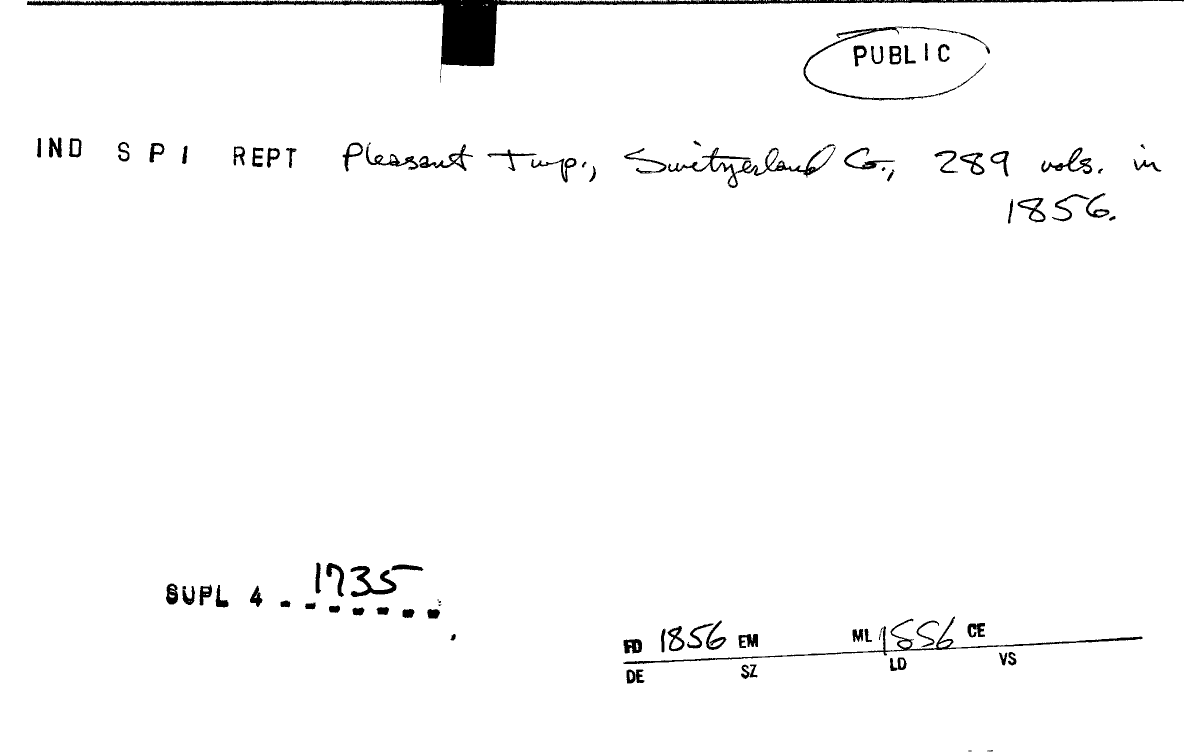 PUBLIC
IND S P I REPT Pleasant Twp., Switzerland Co., 289 vols. in
1856.
SUPL 4 1735
FD 1856 EM ML 1856 CE
DE SZ LD VS